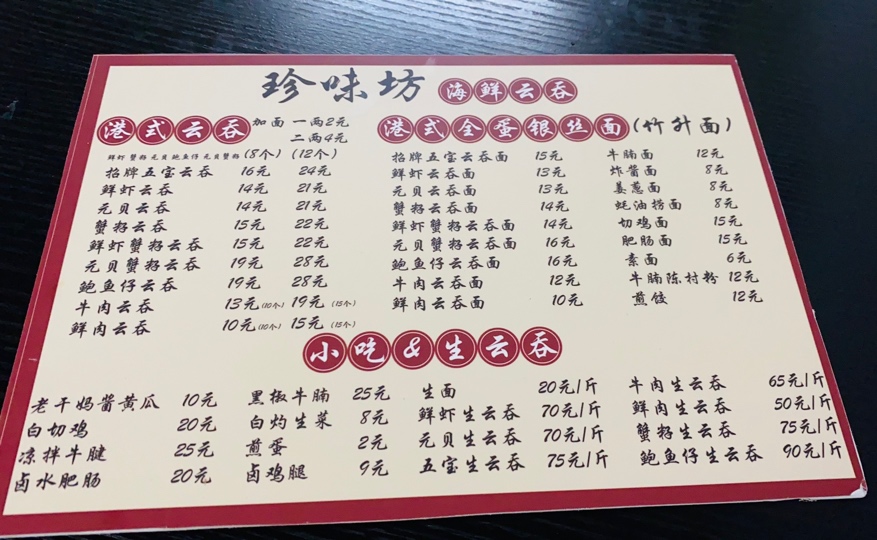 珍味坊 海鲜云吞
港式云吞 加面 一两2元
二两4元
鲜虾 蟹籽 元贝 鲍鱼仔 元贝蟹籽 (8个) (12个)
招牌五宝云吞 16元 24元
鲜虾云吞 14元 21元
元贝云吞 14元 21元
蟹籽云吞 15元 22元
鲜虾蟹籽云吞 15元 22元
元贝蟹籽云吞 19元 28元
鲍鱼仔云吞 19元 28元
牛肉云吞 13元(10个) 19元(15个)
鲜肉云吞 10元(10个) 15元(15个)
港式全蛋银丝面(竹升面)
招牌五宝云吞面 15元
鲜虾云吞面 13元
元贝云吞面 13元
蟹籽云吞面 14元
鲜虾蟹籽云吞面 14元
元贝蟹籽云吞面 16元
鲍鱼仔云吞面 16元
牛肉云吞面 12元
鲜肉云吞面 10元
牛腩面 12元
炸酱面 8元
姜葱面 8元
蚝油捞面 8元
切鸡面 15元
肥肠面 15元
素面 6元
牛腩陈村粉 12元
煎饺 12元
小吃&生云吞
老干妈酱黄瓜 10元
白切鸡 20元
凉拌牛腱 25元
卤水肥肠 20元
黑椒牛腩 25元
白灼生菜 8元
煎蛋 2元
卤鸡腿 9元
生面 20元/斤
鲜虾生云吞 70元/斤
元贝生云吞 70元/斤
五宝生云吞 75元/斤
牛肉生云吞 65元/斤
鲜肉生云吞 50元/斤
蟹籽生云吞 75元/斤
鲍鱼仔生云吞 90元/斤